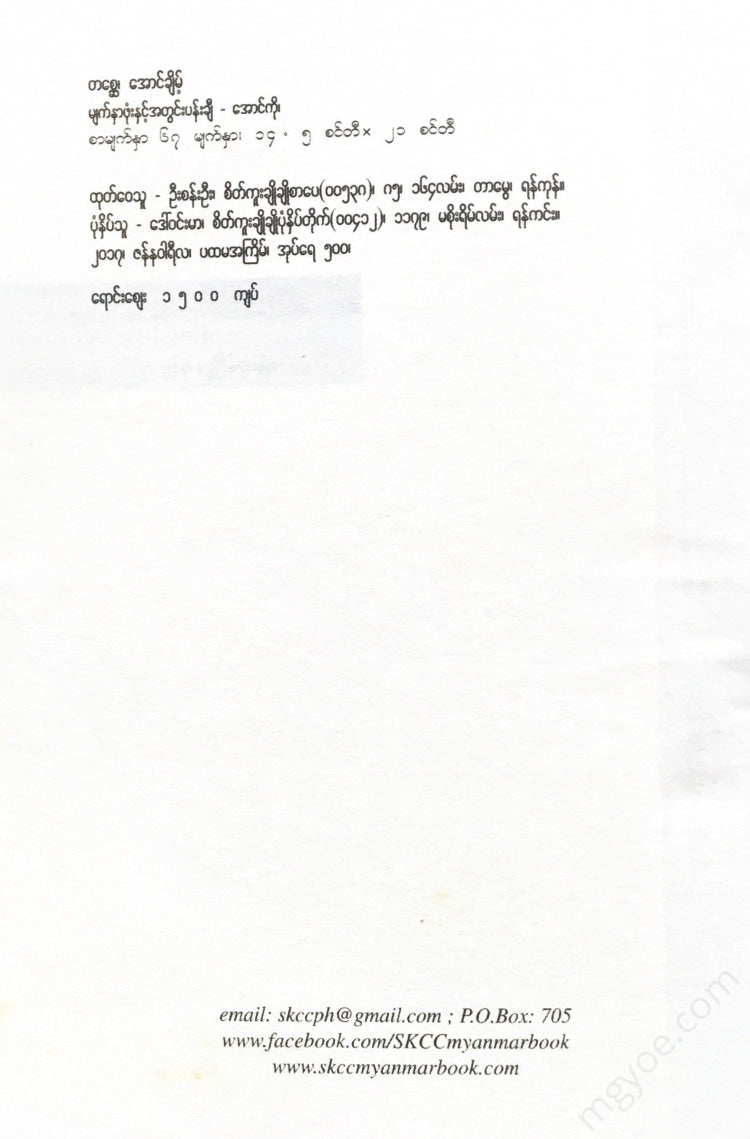 တစ္ဆေ၊ အောင်ချိမ့်
မျက်နှာဖုံးနှင့်အတွင်းပန်းချီ - အောင်ကို၊
စာမျက်နှာ ၆၇ မျက်နှာ၊ ၁၄ . ၅ စင်တီ × ၂၁ စင်တီ
ထုတ်ဝေသူ - ဦးစန်းဦး၊ စိတ်ကူးချိုချိုစာပေ(၀၀၅၃၈)၊ ၈၅၊ ၁၆၄လမ်း၊ တာမွေ၊ ရန်ကုန်။
ပုံနှိပ်သူ - ဒေါ်ဝင်းမာ၊ စိတ်ကူးချိုချိုပုံနှိပ်တိုက်(၀၀၄၁၂)၊ ၁၁၇၉၊ မစိုးရိမ်လမ်း၊ ရန်ကင်း။
၂၀၁၇၊ ဇန်နဝါရီလ၊ ပထမအကြိမ်၊ အုပ်ရေ ၅၀၀၊
ရောင်းဈေး ၁ ၅ ၀ ၀ ကျပ်
email: skccph@gmail.com ; P.O.Box: 705
www.facebook.com/SKCCmyanmarbook
www.skccmyanmarbook.com
mgyoe.com